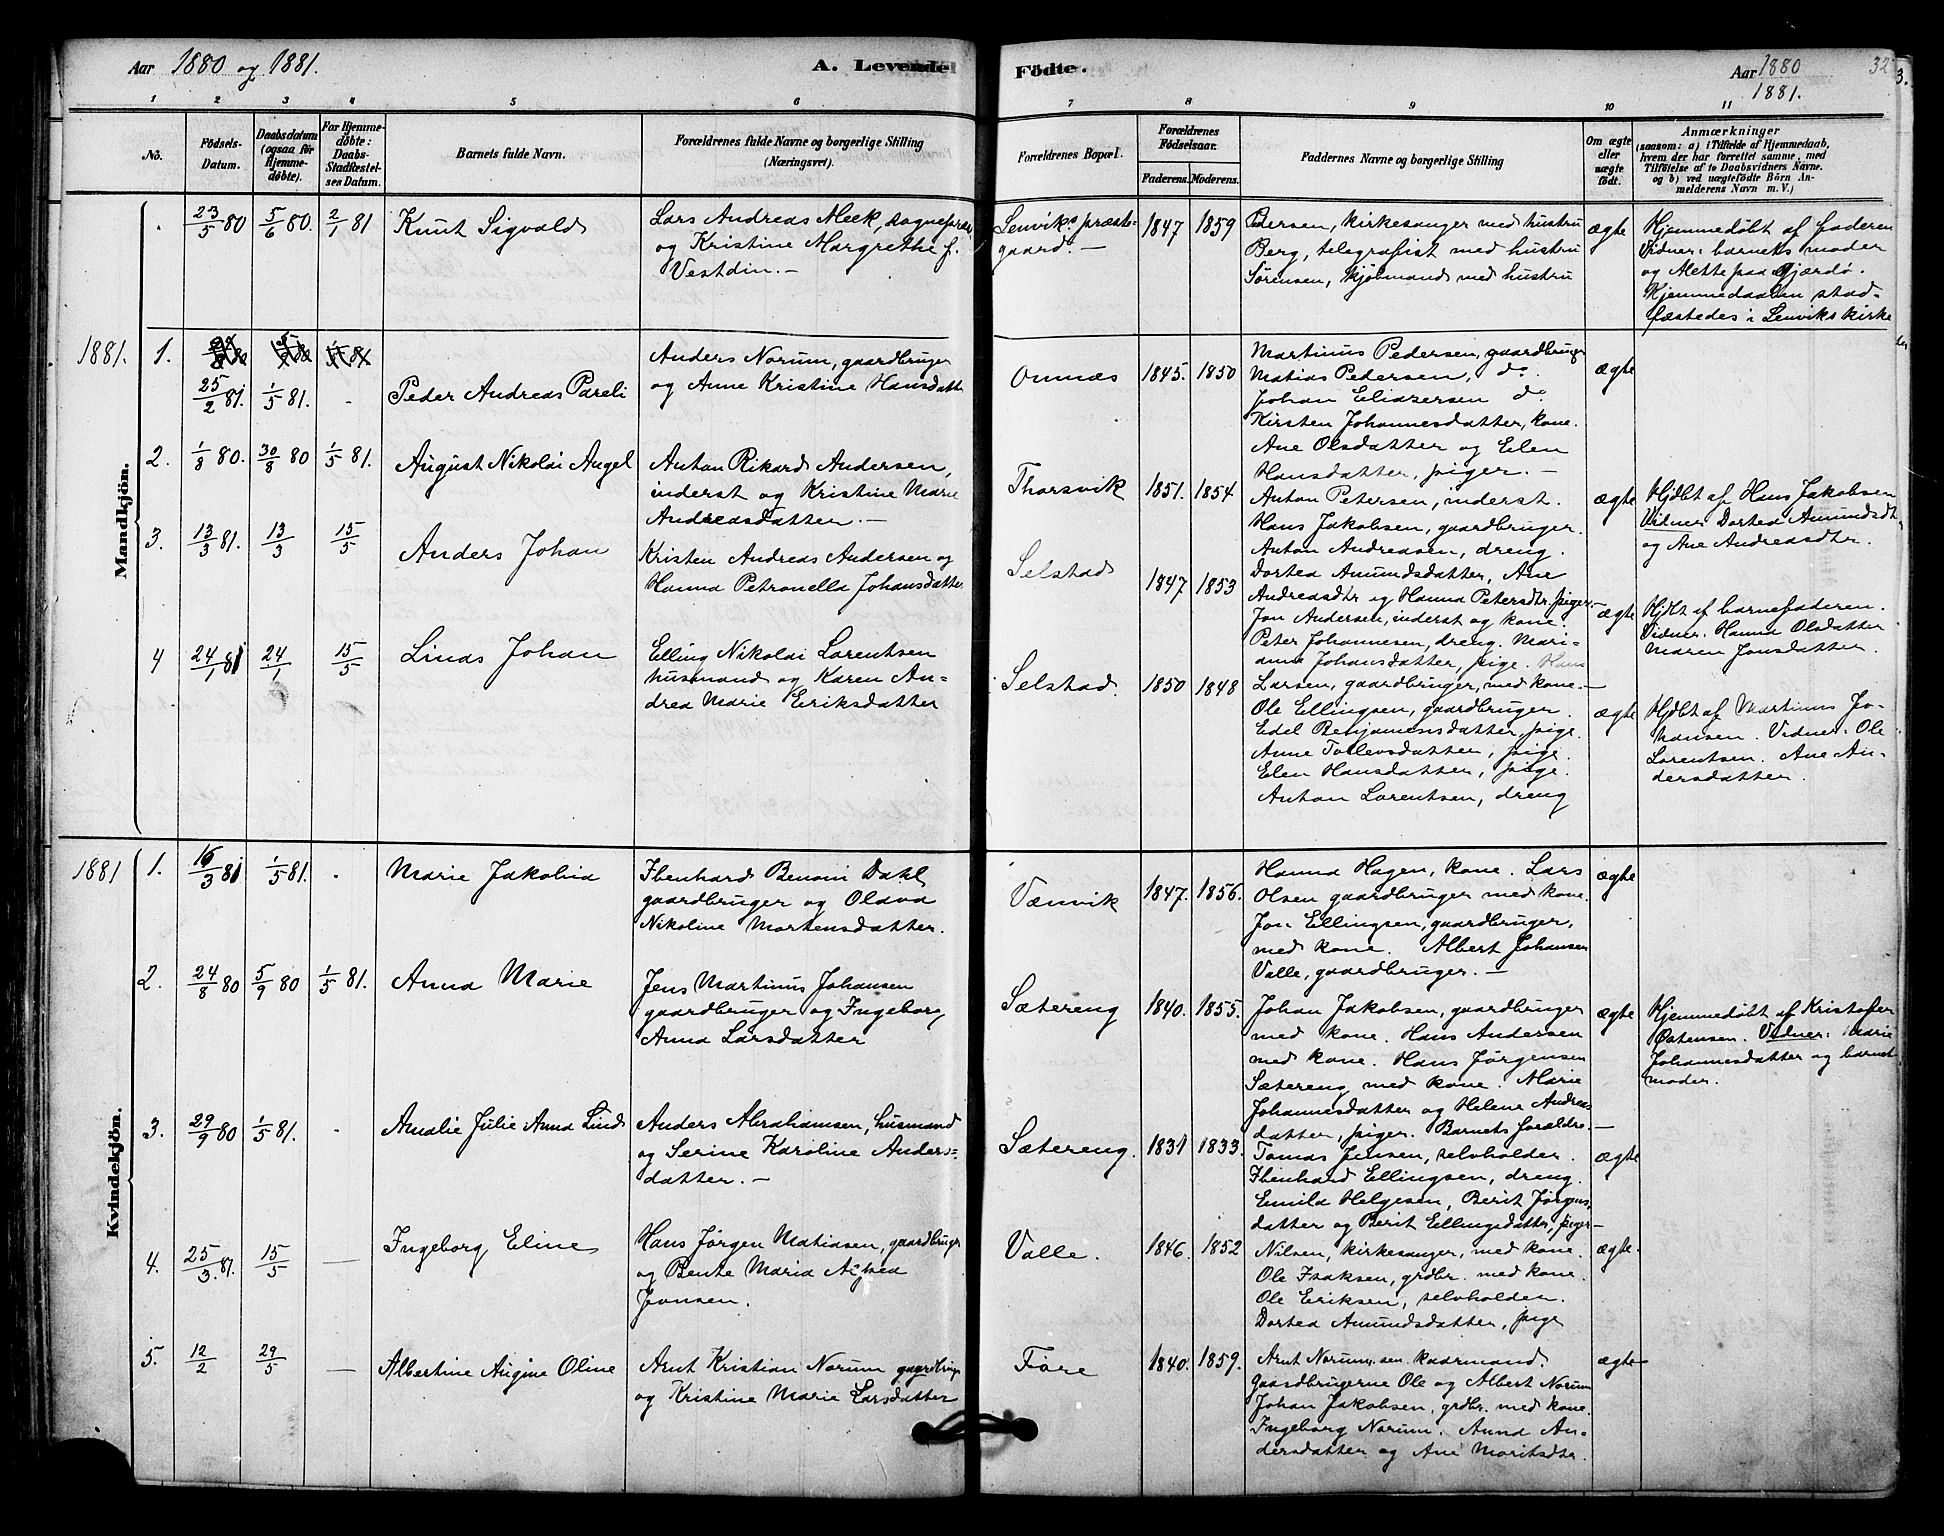 Aar 1880 og 1881.
A. Levende Födte.
Aar 1880
1881.
32
1 2 3 4 5 6 7 8 9 10 11
No.
Födsels-Datum.
Daabsdatum (ogsaa för Hjemmedöbte).
For Hjemmedöbte: Daabs-Stadfæstelses Datum.
Barnets fulde Navn.
Forældrenes fulde Navne og borgerlige Stilling (Næringsvei).
Forældrenes Bopæl.
Forældrenes Födselsaar.
Faderens. Moderens.
Faddernes Navne og borgerlige Stilling
Om ægte eller uægte födt.
Anmærkninger
(saasom: a) i Tilfælde af Hjemmedaab,
hvem der har forrettet samme, med
Tilföielse af to Daabsvidners Navne,
og b) ved uægtefödte Börn Anmelderens Navn m. V.)
Mandkjön.
. 23/5 80 5/6 80. 2/1 81 Knut Sigvald
Lars Andreas Meek, sognepræst
og Kristine Margrethe f.
Vestdin. —
Lenviks præste-
gaard. —
1847 1859
Pedersen, kirkesanger med hustru
Berg, telegrafist med hustru
Sørensen, kjøbmand med hustru
ægte
Hjemmedøbt af faderen
Vidner: barnets moder
og Alette paa Gjærdø.
Hjemmedaaben stad-
fæstedes i Lenviks kirke
1881. 1. 25/2 81. 1/5 81. - Peder Andreas Pareli
Anders Norum, gaardbruger
og Anne Kristine Hansdatter
Onnæs 1845. 1850
Martinus Pedersen, gaardbruger
Matias Pedersen, do.
Johan Eliasersen do.
Kirsten Johannesdatter, kone.
Ane Olsdatter og Elen
Hansdatter, piger. —
ægte
2. 1/8 80. 30/8 80 1/5 81. August Nikolai Angel
Anton Rikard Andersen,
inderst og Kristine Marie
Andreasdatter. —
Thorsvik 1851. 1854
Anton Petersen, inderst.
Hans Jakobsen, gaardbruger.
Anton Andreasen, dreng.
Dortea Amundsdatter, Ane
Andreasdtr og Hanna Petersdtr. piger. —
ægte
Hjdbt af Hans Jakobsen
Vidner Dortea Amundsdtr
og Ane Andreasdtr.
3. 13/3 81. 13/3 15/5 Anders Johan
Kristen Andreas Andersen og
Hanna Petronella Johansdatter
Selstad 1847 1853
Jon Andersen, inderst og kone.
Peter Johannesen, dreng. Mari-
anna Johansdatter, pige. Hans
Larsen, gaardbruger, med kone. —
ægte
Hjdbt af barnefaderen.
Vidner. Hanna Olsdatter
Maren Jonsdatter.
4 24/1 81 24/1 15/5 Linas Johan
Elling Nikolai Lorentsen
husmand og Karen An-
drea Marie Eriksdatter
Selstad. 1850 1848
Ole Ellingsen, gaardbruger.
Edel Benjaminsdatter, pige.
Anne Tollevsdatter, pige.
Elen Hansdatter, pige.
Anton Lorentsen, dreng
ægte
Hjdbt af Martinus Jo-
hansen. Vidner. Ole
Lorentsen. Ane An-
dersdatter.
Kvindekjön.
1881 1. 16/3 81 1/5 81. . Marie Jakobia
Ibenhard Benoni Dahl,
gaardbruger og Olava
Nikoline Mortensdatter.
Vænvik 1847. 1856.
Hanna Hagen, kone. Lars
Olsen gaardbruger med kone.
Jon Ellingsen, gaardbruger,
med kone. Albert Johansen
Valle, gaardbruger. —
ægte
2. 24/8 80 5/9 80 1/5 81. Anna Marie
Jens Martinus Johansen
gaardbruger og Ingeborg
Anna Larsdatter
Sætereng 1840. 1855.
Johan Jakobsen, gaardbruger
med kone. Hans Andersen
med kone. Hans Jørgensen
Sætereng med kone. Marie
Johannesdatter og Helene Andreas
datter, piger. Barnets forældre. —
ægte
Hjemmedøbt af Kristofer
Østensen. Vidner: Marie
Johannesdatter og barnets
moder.
3. 29/9 80 1/5 81. - Amalie Julie Anna Lind
Anders Abrahamsen, husmand
og Serine Karoline Anders-
datter. —
Sætereng. 1831 1833.
Tomas Jensen, selvholder.
Ibenhard Ellingsen, dreng.
Emilia Helgesen, Berit Jørgens
datter og Berit Ellingsdatter, piger —
ægte
4. 25/3 81. 15/5 — Ingeborg Eline
Hans Jørgen Matiasen, gaardbruger
og Bente Maria
Jonsen.
Valle. 1846. 1852
Nilsen, kirkesanger, med kone.
Ole Isaksen, grdbr. med kone.
Ole Eriksen, selvholder.
Dortea Amundsdatter, pige
ægte.
5. 12/2 29/5 — Albertine Augine Oline
Arnt Kristian Norum gaardbruger
og Kristine Marie Larsdatter
Føre 1840. 1859.
Arnt Norum, sen. kaarmand.
Gaardbrugerne Ole og Albert Norum
Johan Jakobsen, grdbr. med kone.
Ingeborg Norum. Anna An-
dersdatter og Ane Moritsdtr.
ægte